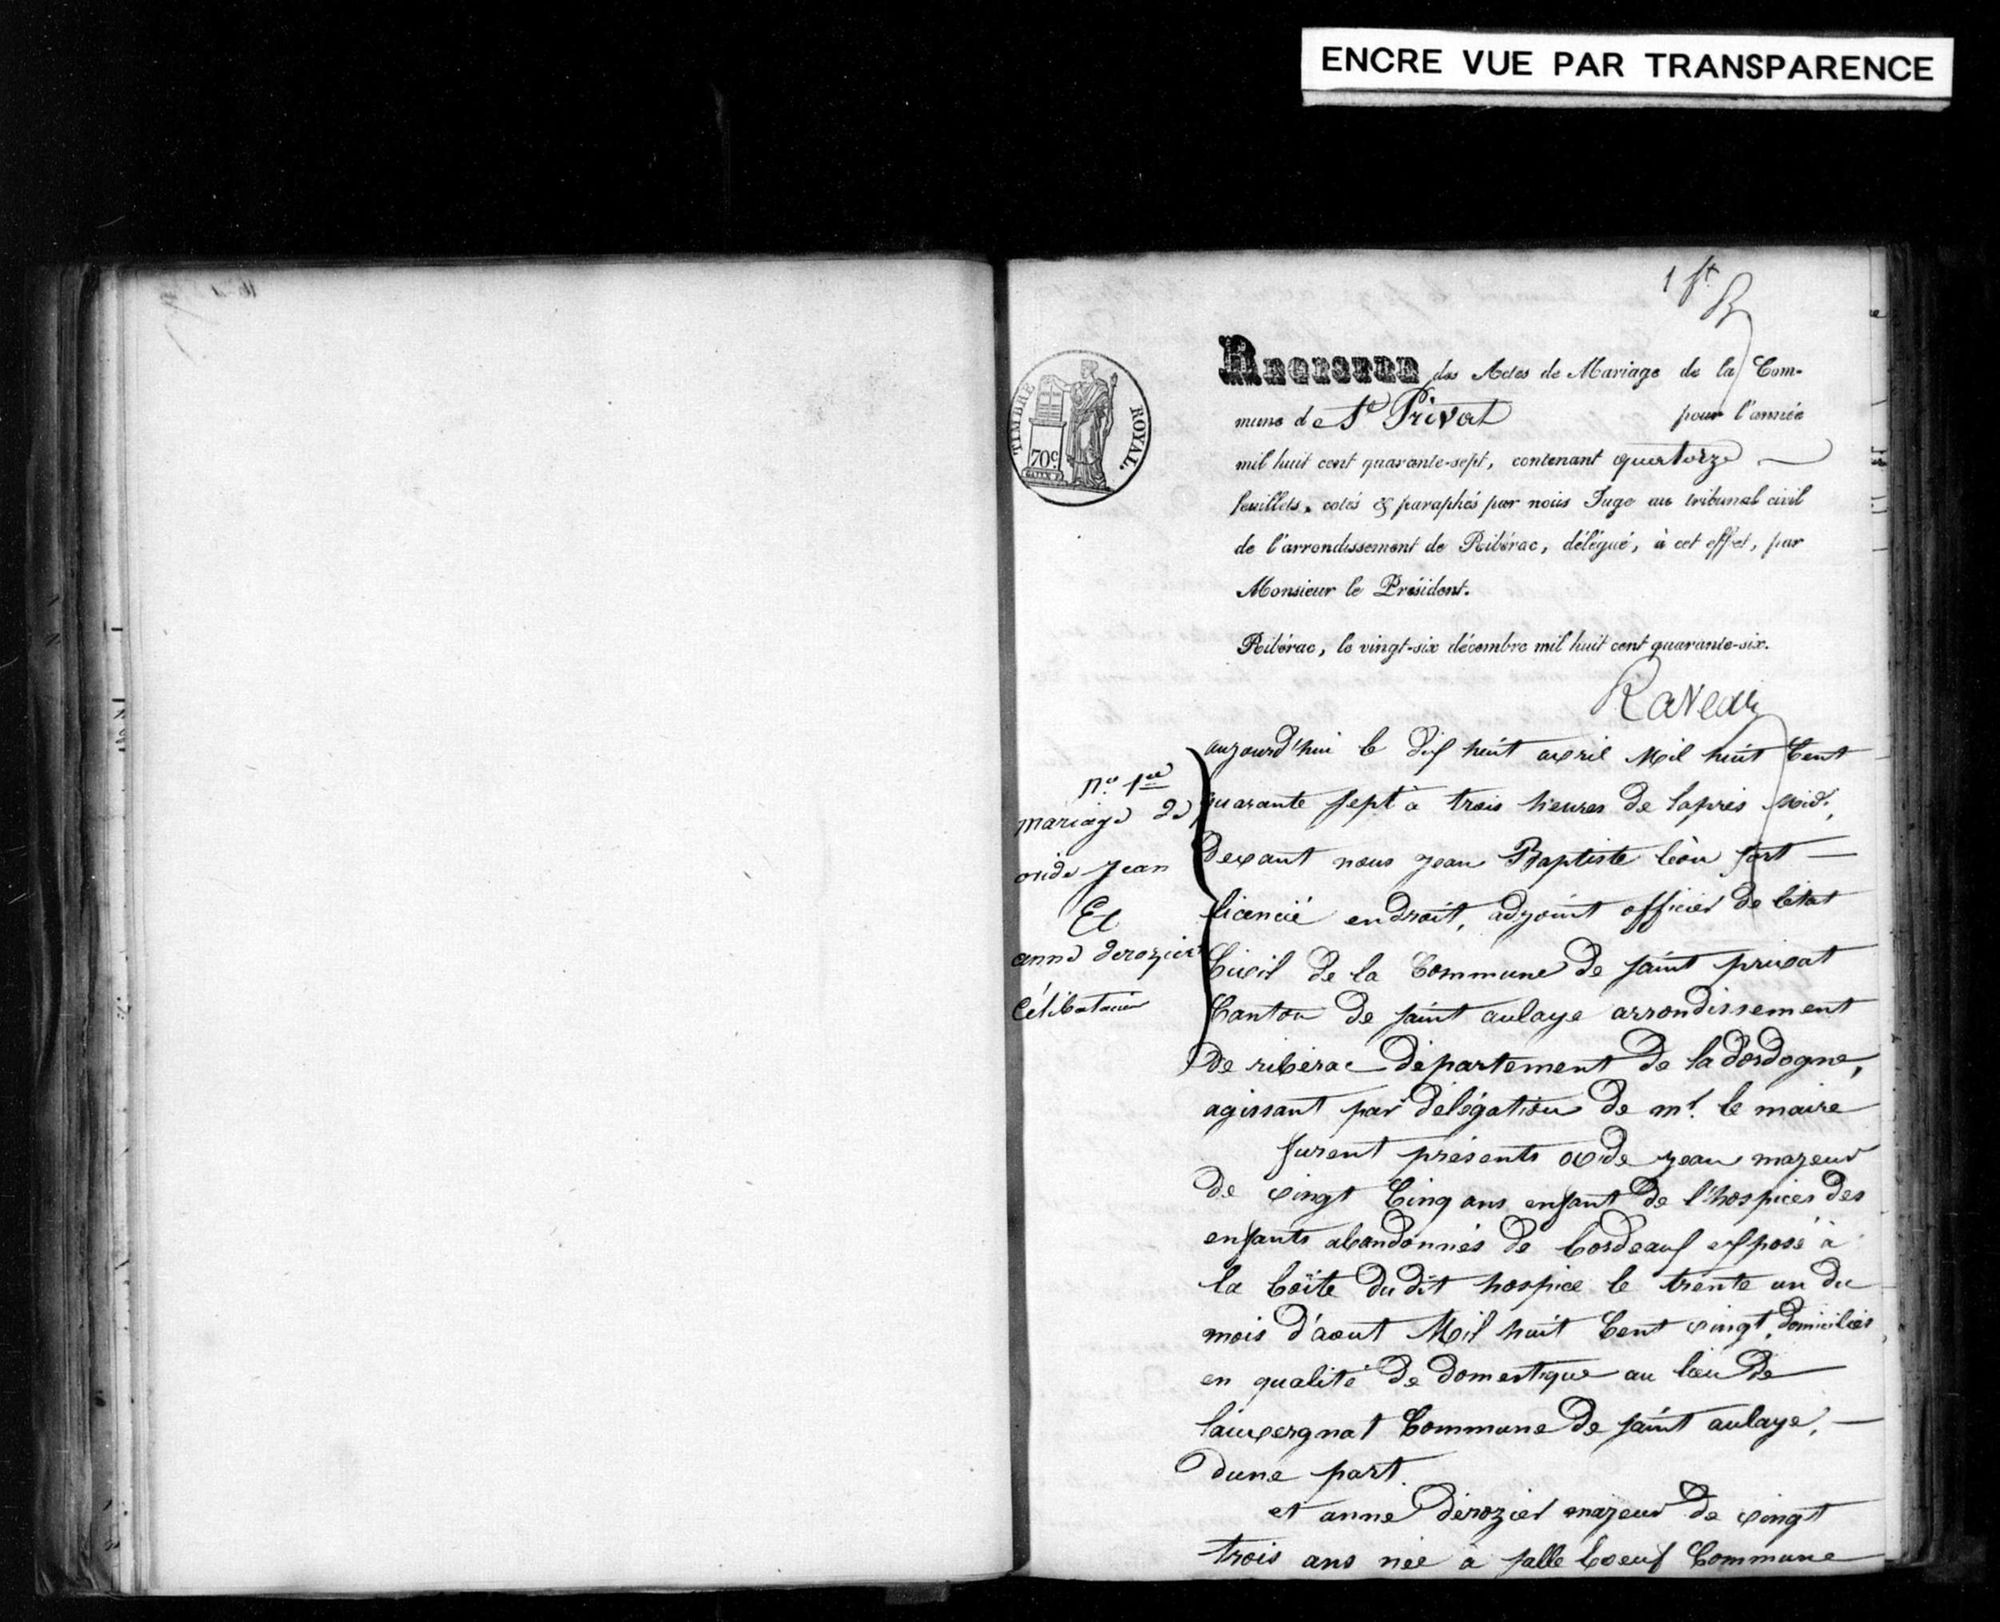 ENCRE VUE PAR TRANSPARENCE
1 ft
TIMBRE ROYAL.
70c
REGISTRE des Actes de Mariage de la Com-
mune de St Privat pour l'année
mil huit cent quarante-sept, contenant quatorze
feuillets, cotés & paraphés par nous Juge au tribunal civil
de l'arrondissement de Ribérac, délégué, à cet effet, par
Monsieur le Président.
Ribérac, le vingt-six décembre mil huit cent quarante-six.
no 1re
mariage de
ovide Jean
Et
anne derozier
Célibataire
aujourd'hui le dix huit avril Mil huit Cent
quarante sept à trois heures de lapres midi,
devant nous jean Baptiste léon fort
licencié en droit, adjoint officier de létat
Civil de la Commune de saint privat
Canton de saint aulaye arrondissement
de riberac département de la dordogne,
agissant par délégation de mr. le maire
furent présents ovide jean majeur
de vingt Cinq ans enfant de l'hospices des
enfants abandonnés de bordeaux exposé à
la boîte du dit hospice le trente un du
mois d'aout Mil huit Cent vingt, domicilier
en qualité de domestique au lieu de
lauvergnat Commune de saint aulaye,
dune part.
et anne dérozier majeur de vingt
trois ans née à salle boeuf Commune